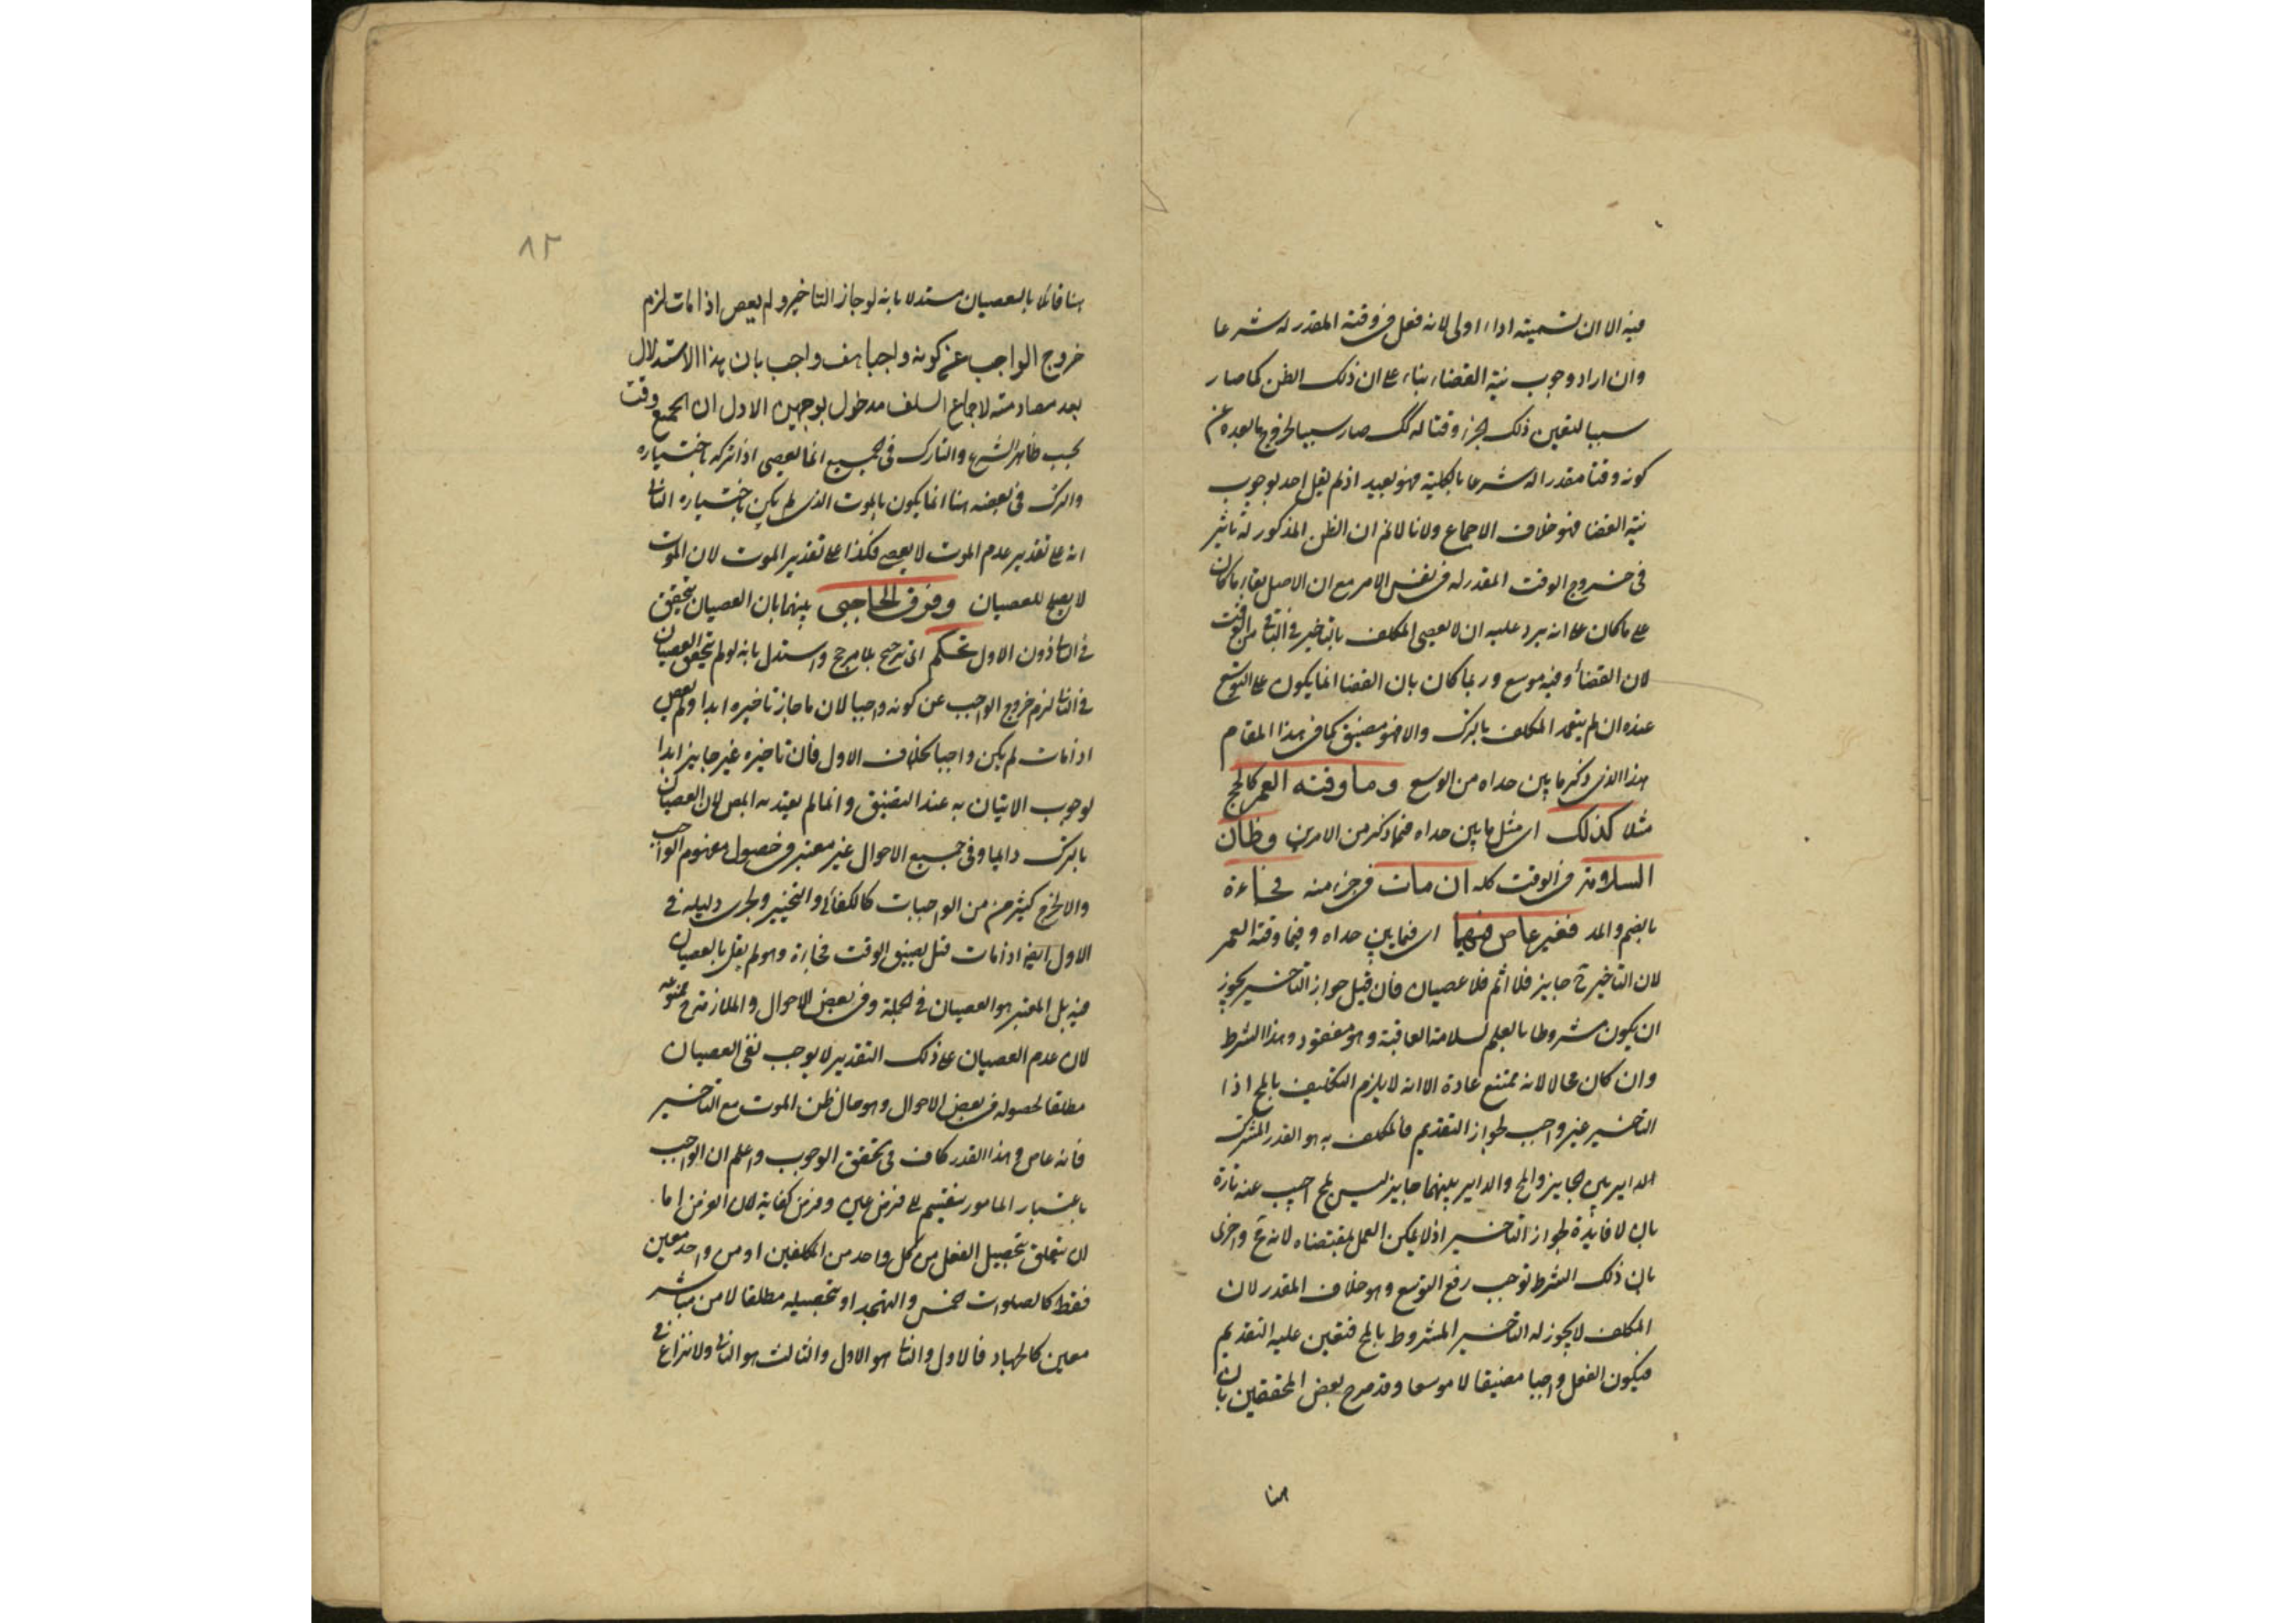 فيه الا ان تسميته اداء اولى لانه فعل في وقته المقدر له شرعا
وان اراد وجوب نية القضاء بناء على ان ذلك الظن كما صار
سببا لتعين ذلك الجزء وقتا له كك صار سببا لخروج ما بعده عن
كونه وقتا مقدرا له شرعا بالكلية فهو بعيد اذ لم يقل احد بوجوب
نية القضا فهو خلاف الاجماع ولانا لانم ان الظن المذكور له تاثير
في خروج الوقت المقدر له في نفس الامر مع ان الاصل بقاء ما كان
على ما كان على انه يرد عليه ان لا يعصى المكلف بالتاخير في الباقي من الوقت
لان القضاء وفيه موسع وربما كان بان القضا انما يكون على التوسع
عنده ان لم يتعمد المكلف بالترك والا فهو مضيق كما في هذا المقام
هذا الذي ذكر ما بين حداه من الوسع وما وقته العمر كالحج
مثلا كذلك اى مثل ما بين حداه فيما ذكر من الامرين وظان
السلامة في الوقت كله ان مات في جزء منه فجاءة
بالضم والمد فغير عاص فيهما اى فيما بين حداه وفيما وقته العمر
لان التاخير ح جايز فلا اثم فلا عصيان فان قيل جواز التاخير يجوز
ان يكون مشروطا بالعلم بسلامة العاقبة وهو مفقود وهذا الشرط
وان كان محالا لانه ممتنع عادة الا انه لا يلزم التكليف بالمح اذا
التاخير غير واجب لجواز التقديم فالمكلف به هو القدر المشترك
الداير بين الجايز والمح والداير بينهما جايز ليس بمح اجيب عنه تارة
بان لا فايدة لجواز التاخير اذ لا يمكن العمل بمقتضاه لانه مح واخرى
بان ذلك الشرط توجب رفع التوسع وهو خلاف المقدر لان
المكلف لا يجوز له التاخير المشروط بالمح فتعين عليه التقديم
فيكون الفعل واجبا مضيقا لا موسعا وقد صرح بعض المحققين بان
هنا
٨٢
هنا قائلا بالعصيان مستدلا بانه لو جاز التاخير ولم يعص اذا مات لزم
خروج الواجب عن كونه واجبا هف واجيب بان هذا الاستدلال
بعد مصادمته لاجماع السلف مدخول بوجهين الاول ان الجميع وقت
بحسب ظاهر الشرع والتارك في الجميع انما يعصى اذا تركه باختياره
والترك في بعضه هنا انما يكون بالموت الذى لم يكن باختياره الثانى
انه على تقدير عدم الموت لا يعصى فكذا على تقدير الموت لان الموت
لا يصلح للعصيان وفرق الحاجبى بينهما بان العصيان يتحقق
في الثانى دون الاول تحكم اى ترجيح بلا مرجح واستدل بانه لو لم يتحقق العصيان
في الثانى لزم خروج الواجب عن كونه واجبا لان ما جاز تاخيره ابدا ولم يعص
اذا مات لم يكن واجبا بخلاف الاول فان تاخيره غير جايز ابدا
لوجوب الاتيان به عند التضيق وانما لم يعتد به المص لان العصيان
بالترك دايما وفي جميع الاحوال غير معتبر في حصول مفهوم الواجب
والا لخرج كثير من الواجبات كالكفائى والتخيير ولجرى دليله في
الاول ايضا اذا مات قبل تضيق الوقت فجاءة وهو لم يقل بالعصيان
فيه بل المعتبر هو العصيان في الجملة وفي بعض الاحوال والملازمة ح ممنوعة
لان عدم العصيان على ذلك التقدير لا يوجب نفى العصيان
مطلقا لحصوله في بعض الاحوال وهو حال ظن الموت مع التاخير
فانه عاص ح وهذا القدر كاف في تحقق الوجوب واعلم ان الواجب
باعتبار المامور ينقسم الى فرض عين وفرض كفاية لان الغرض اما
ان يتعلق بتحصيل الفعل من كل واحد من المكلفين او من واحد معين
فقط كالصلوات الخمس والتهجد او بتحصيله مطلقا لا من مباشر
معين كالجهاد فالاول والثانى هو الاول والثالث هو الثانى ولا نزاع في